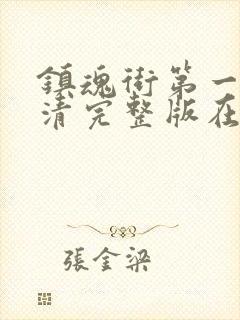 鎮魂街第一
清完整版在
張金梁